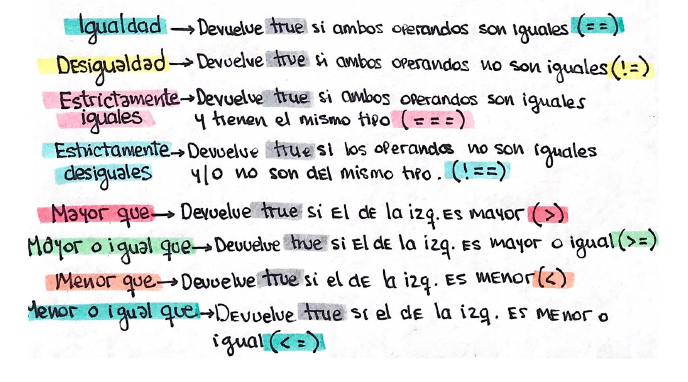 Igualdad → Devuelve true si ambos operandos son iguales (==)
Desigualdad → Devuelve true si ambos operandos no son iguales (!=)
Estrictamente iguales → Devuelve true si ambos operandos son iguales
y tienen el mismo tipo (===)
Estrictamente desiguales → Devuelve true si los operandos no son iguales
y/o no son del mismo tipo. (!==)
Mayor que → Devuelve true si El de la izq. Es mayor (>)
Mayor o igual que → Devuelve true si El de la izq. Es mayor o igual (>=)
Menor que → Devuelve true si el de la izq. Es menor (<)
Menor o igual que → Devuelve true si el de la izq. Es menor o
igual (<=)